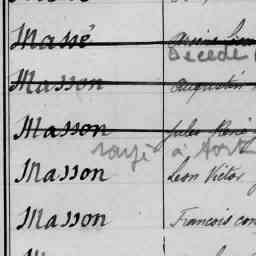 Massé
Décédé
Masson Augustin
Masson Jules René
rayé à
Masson Léon Victor
Masson François